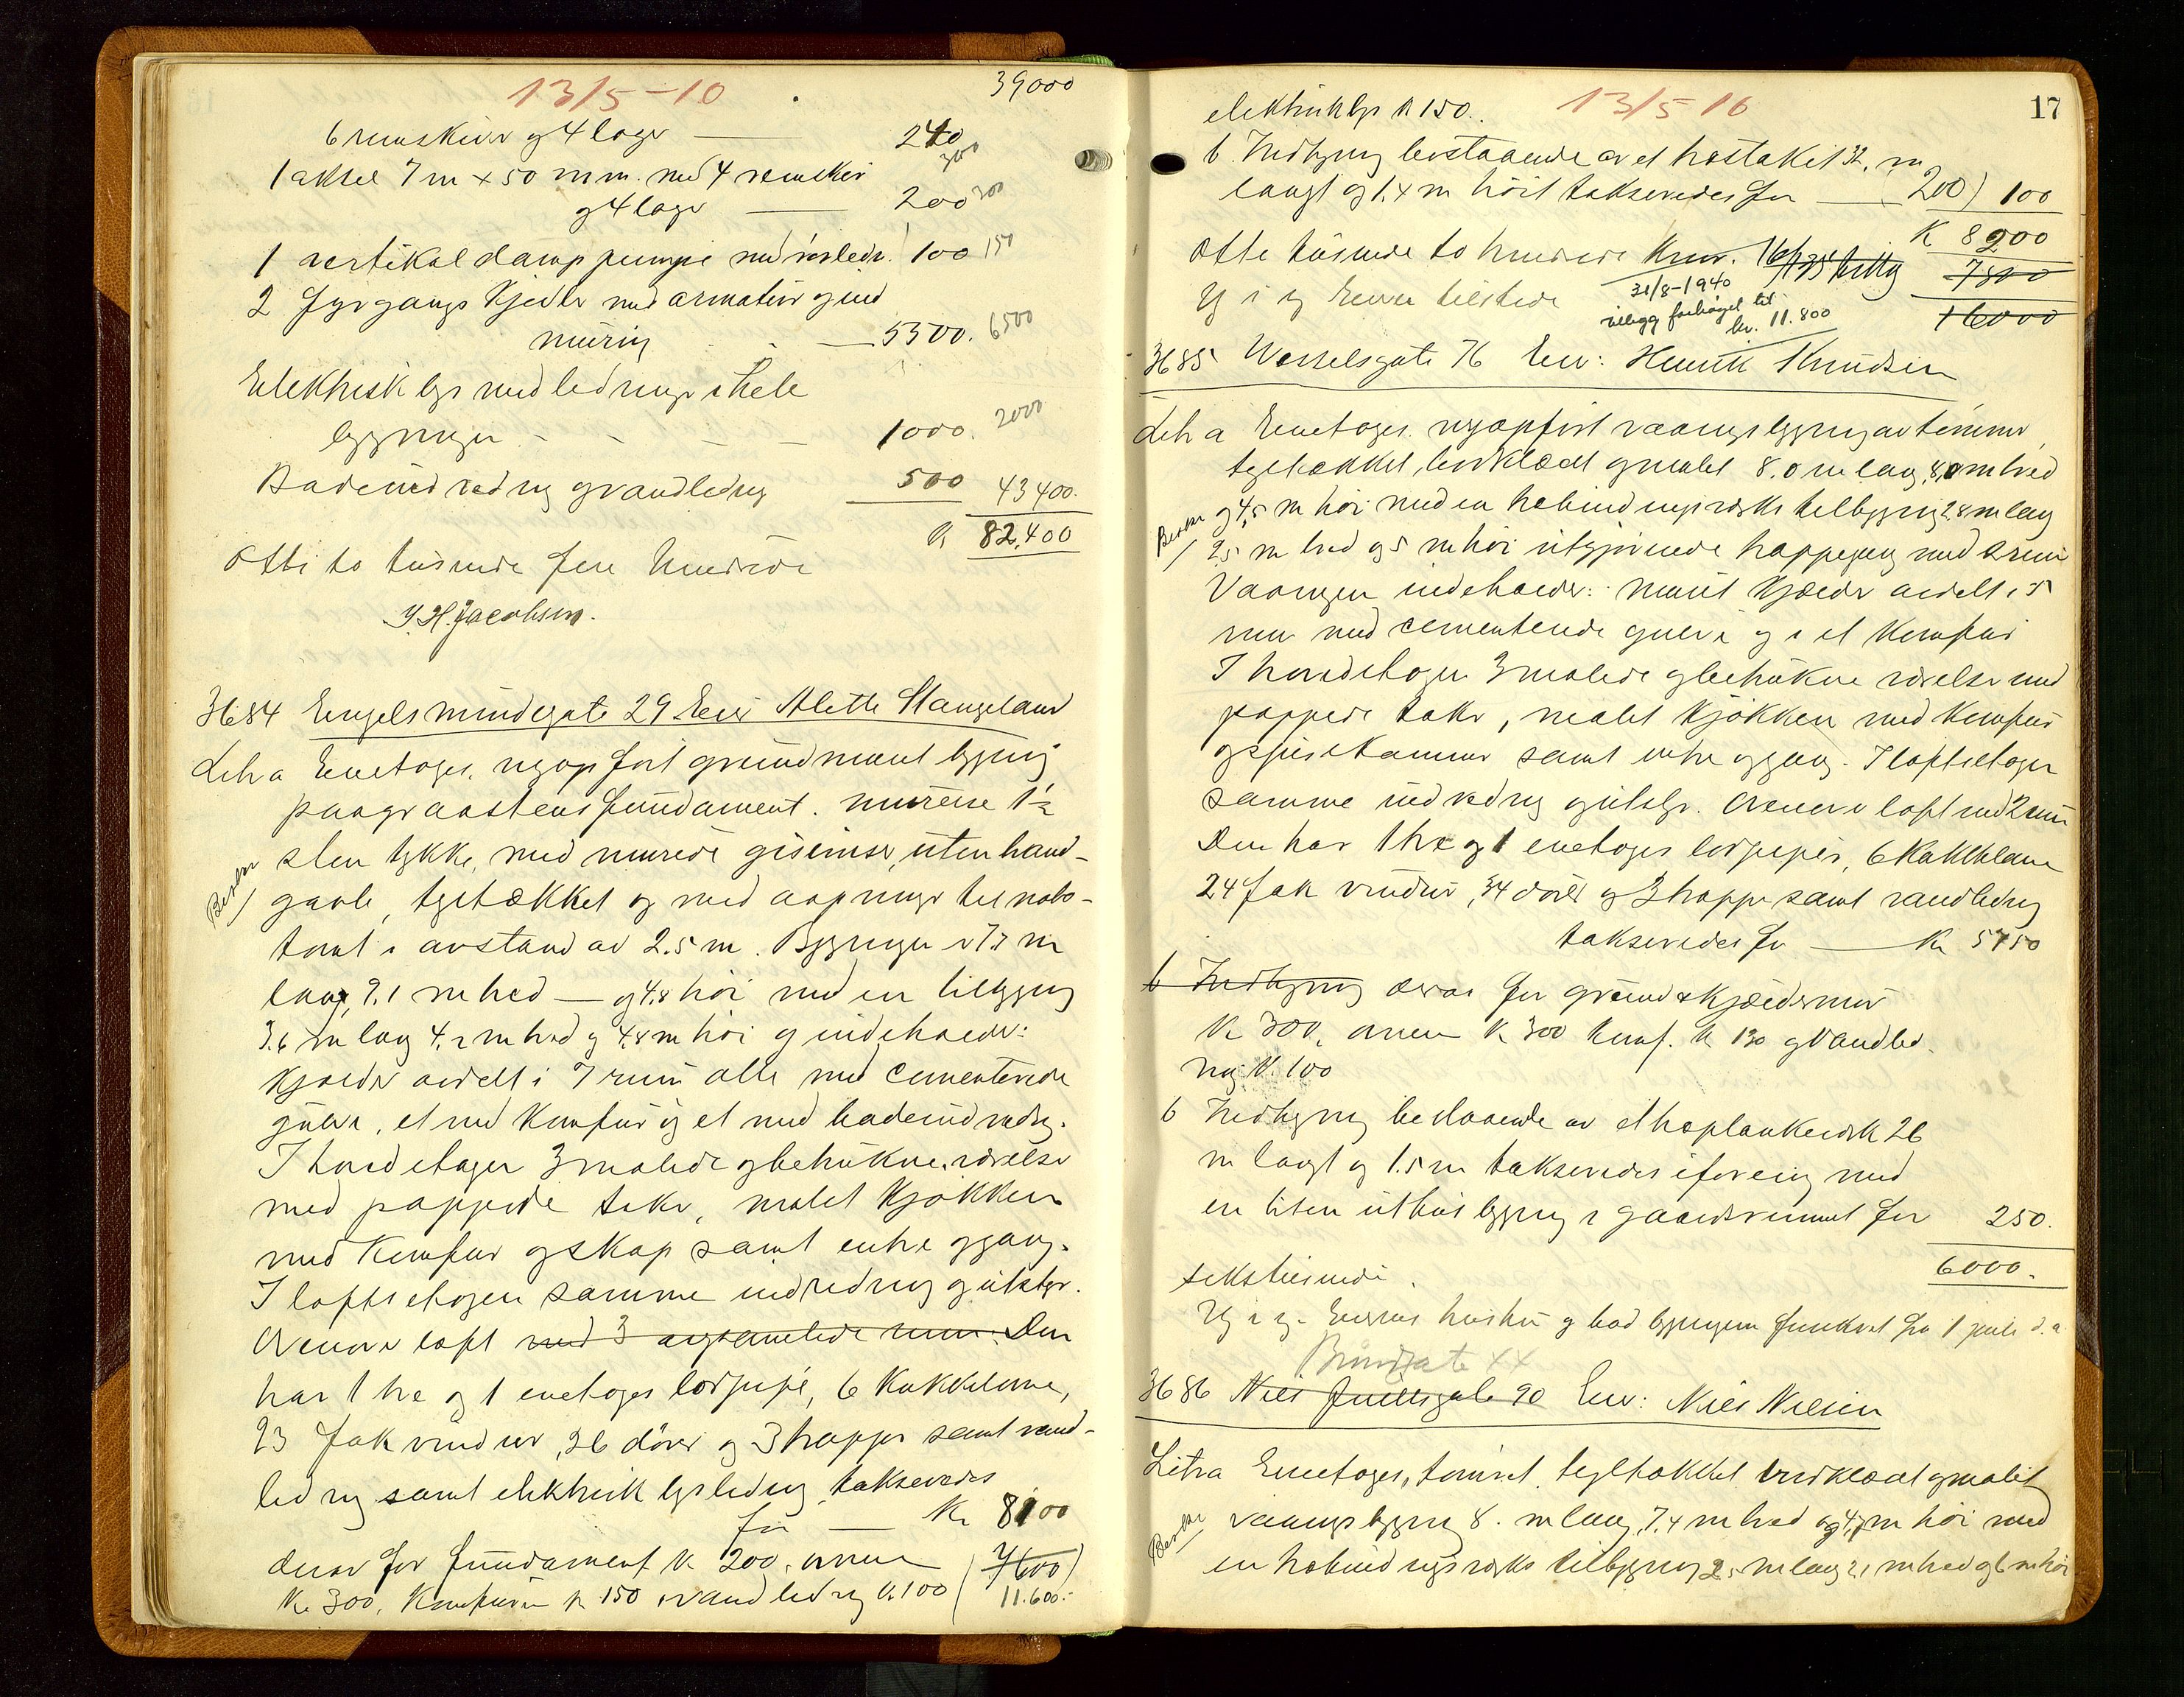 13/5-10
39000
6 remskiver og 4 lager — 240
300
1 aksel 7 m × 50 mm. med 4 remskiv
og 4 lager — 200 300
1 vertikal damppumpe med rørledn. 100 150
2 Fyrgangs Kjedler med armatur og ind
muring — 5300. 6500
Elektrisk lys med ledninger i hele
bygningen - - - 1000. 2000
Badeindredning og vandledning 500 43400.
K 82,400
Otti to tusinde fire hundrede
J. H. Jacobsen.
3684 Engelsmindegate 29 Eier Alette Stangeland
Litr a Enetages, nyopført grundmuret bygning
paa graastens fundament. murene 1½
sten tykke, med murede gesimser, uten brand-
gavle, tegltækket og med aapninger til nabo-
tomt i avstand av 2.5 m. Bygningen er 7.7 m
lang, 9.1 m bred — og 4.8 høi med en tilbygning
3.6 m lang 4.2 m bred og 4.8 m høi og indeholder:
Kjælder avdelt i 7 rum alle med cementerede
gulve, et med Komfur og et med badeindredng.
I første etager 3 malede og betrukne værelser
med pappede taker, malet Kjøkken
med Komfur og skap samt entre og gang.
I loftsetagen samme indredning og utstyr.
Øvenover loft med 3 avpanelede rum. Den
har 1 tre og 1 enetages lodpipe, 6 Kakkelovne,
23 fak vinduer, 26 dører og 3 trapper samt vand-
ledning samt elektrisk lysledning, takseredes
for — Kr 8100
derav for fundament k 200, ovnene (7600)
Kr. 300, Komfuren k 150, vandledning k 100 ( 11.600.-
13/5 16
17
elektrisk lys k 150.
b. Indhegning bestaaende av et træstaket 32, m
langt og 1.4 m høit takseredes for — 200) 100
K 8200
Otte tusinde to hundrede Kroner.
7800
31/8-1940
tillegg forhøiet til
kr. 11.800
16000
3685 Wesselsgate 76 Eier: Henrik Knudsen
Litr a Enetages nyopført vaaningsbygning av tømmer,
tegltækket, bordklædt og malet 8.0 m lang, 8,0 m bred
og 4,5 m høi med en trebindingsverks tilbygning 2.8 m lang
2.5 m bred og 5 m høi utgjørende trappegang med 2 rum
Vaaningen indeholder: muret Kjælder avdelt i 5
rum med cementerede gulve og i et Komfur
I hovedetagen 3 malede og betrukne værelser med
pappede taker, malet Kjøkken med Komfur
og spisekammer samt entre og gang. I loftsetagen
samme indredning og utstyr. Ovenover loft med 2 rum
Den har 1 tre og 1 enetages lodpiper, 6 Kakkelovne
24 fak vinduer, 34 dører og 3 trapper samt vandledning
takseredes for — Kr 5750
b Indhegning derav for grund & kjældermur
K 300, ovnene K 300 Komf. K 130 og Vandled
ning K. 100
b Indhegning bestaaende av et træplankeverk 26
m langt og 1.5 m takseredes iforening med
en liten uthusbygning i gaardsrummet for 250.
6000.
Sekstusinde.
Eierens hustru og bad bygningen forsikret fra 1 juli d.a.
3686 Niels Juelsgate 90 Eier: Niels Nielsen
Litra Enetages, tømret, tegltækket bordklædt og malet
vaaningsbygning 8. m lang, 7,4 m bred og 4,7 m høi med
en trebindingsverks tilbygning 2,5 m lang 2,1 m bred og 6 m høi